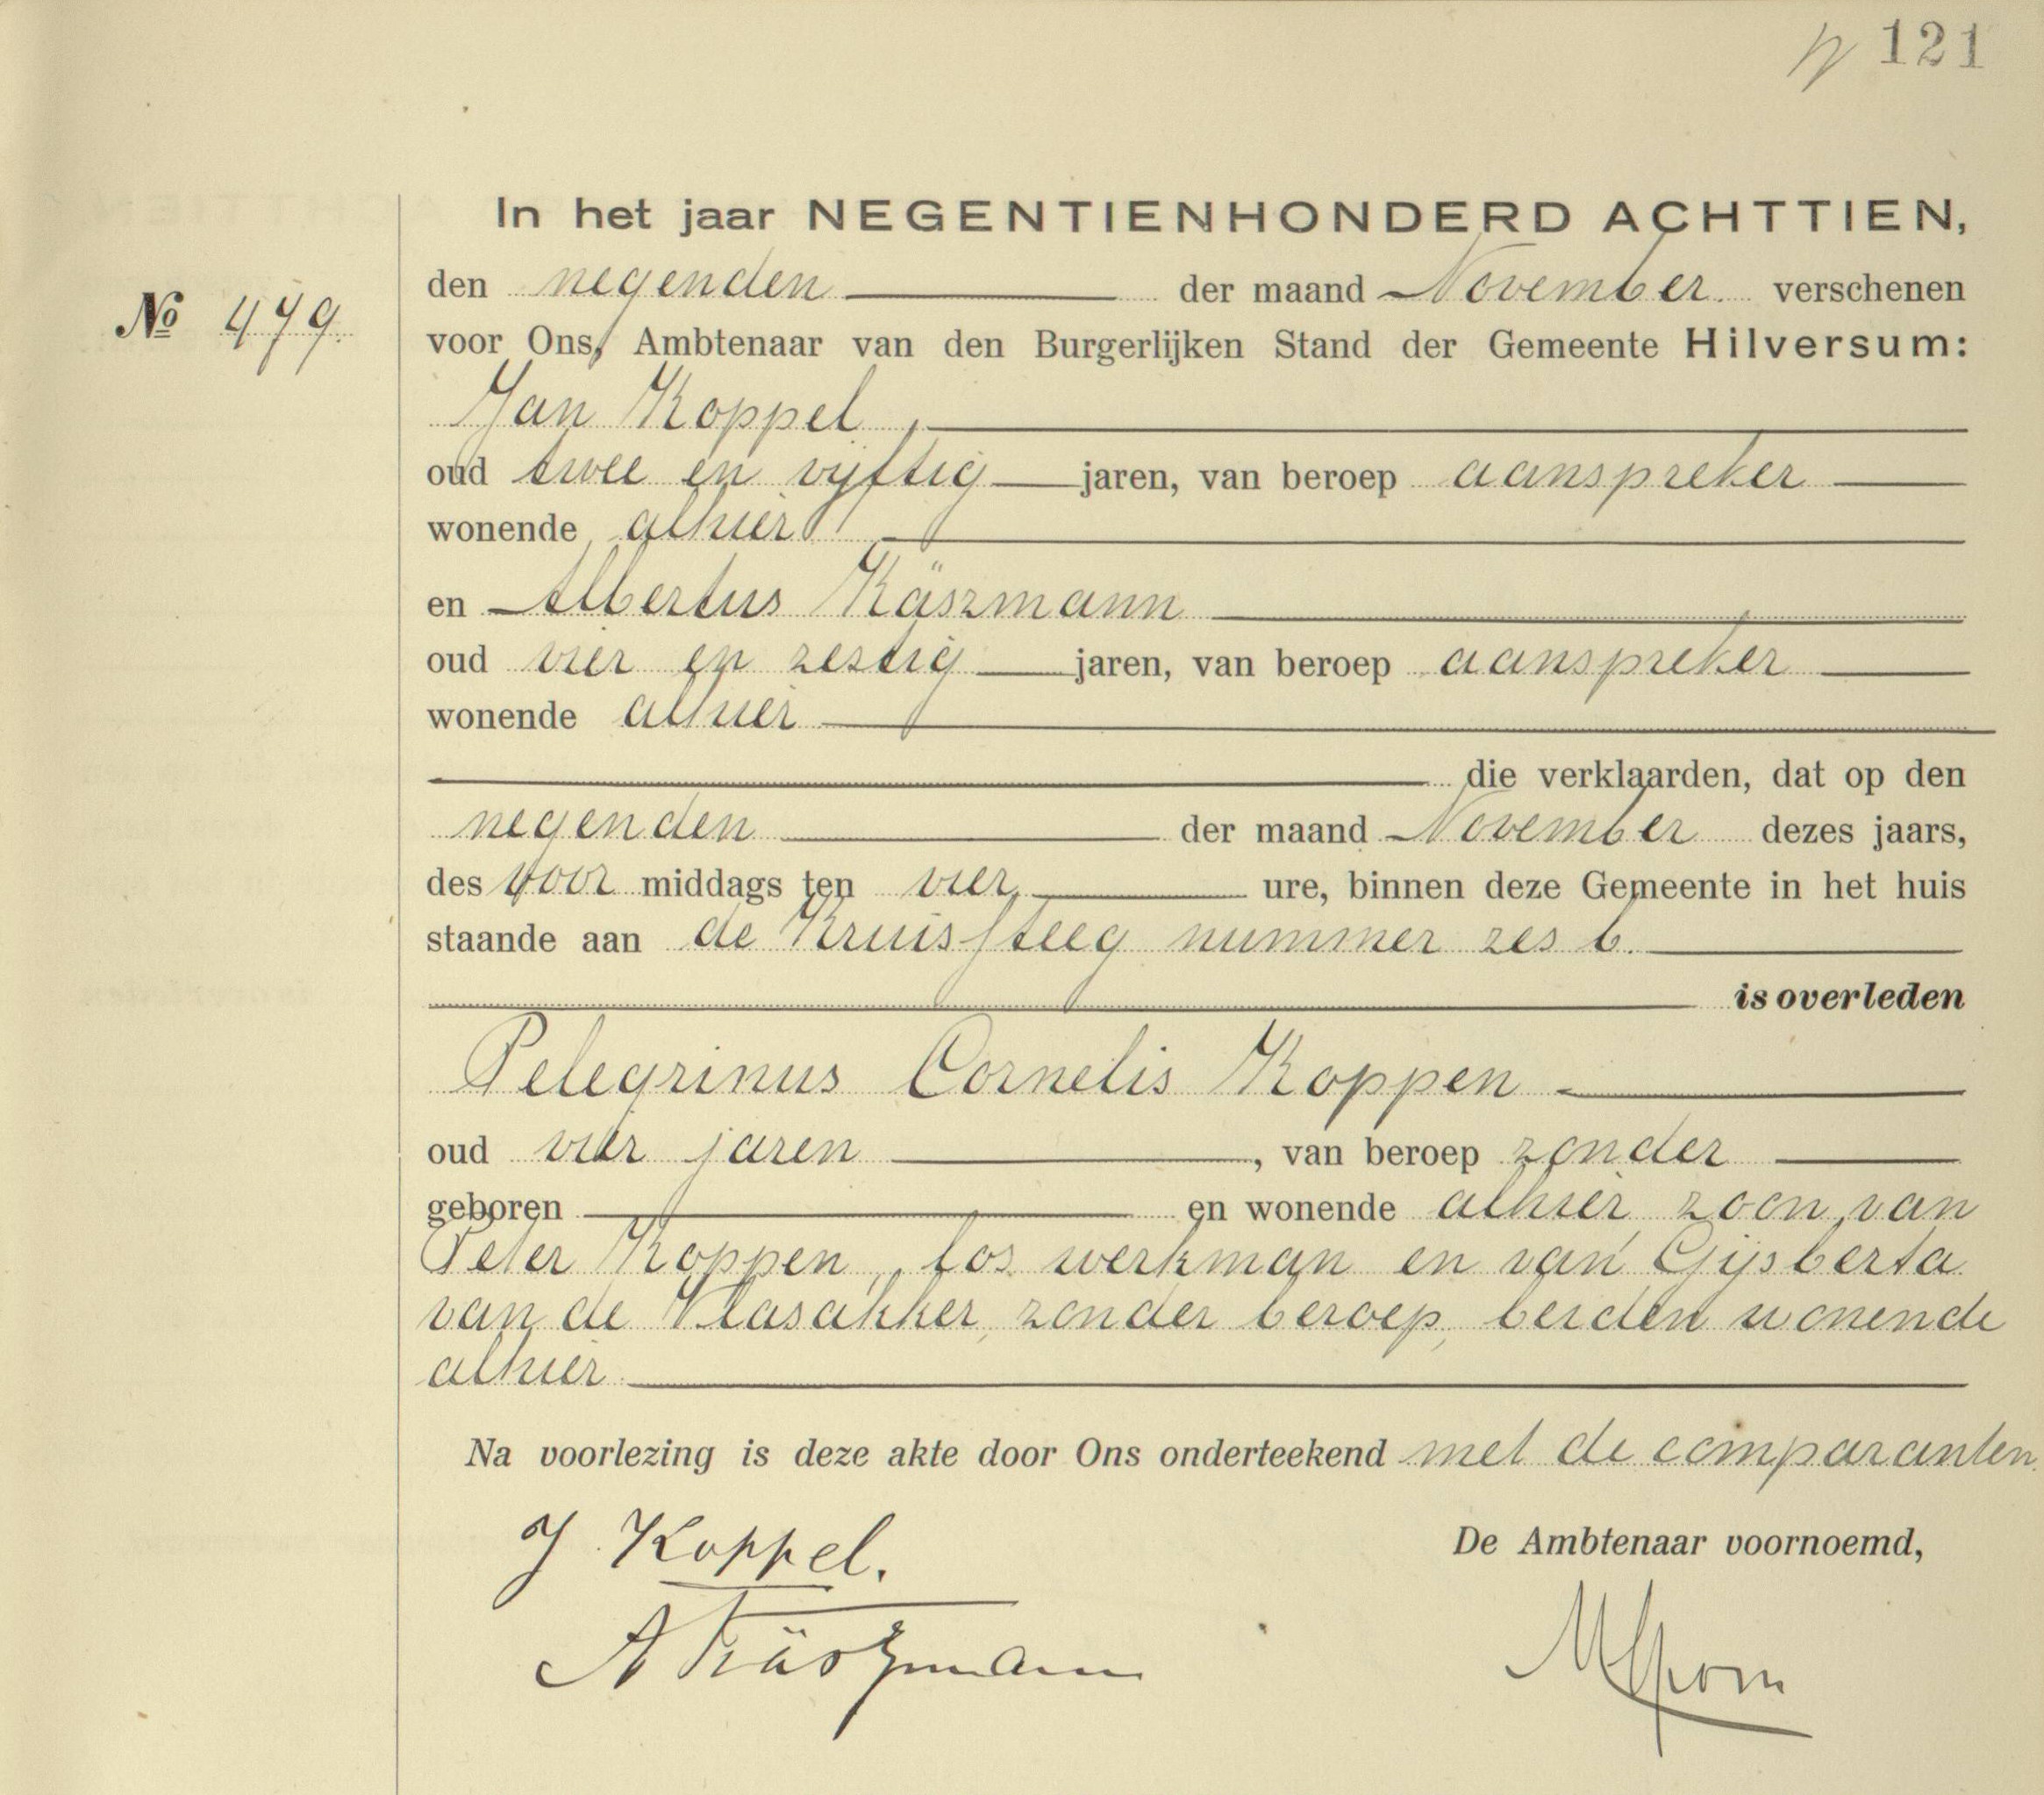 121
In het jaar NEGENTIENHONDERD ACHTTIEN,
den negenden der maand November verschenen
No 479.
voor Ons, Ambtenaar van den Burgerlijken Stand der Gemeente Hilversum:
Jan Koppel,
oud twee en vijftig jaren, van beroep aanspreker
wonende alhier
en Albertus Käszmann
oud vier en zestig jaren, van beroep aanspreker
wonende alhier
die verklaarden, dat op den
negenden der maand November dezes jaars,
des voor middags ten vier ure, binnen deze Gemeente in het huis
staande aan de Kruissteeg nummer zes b.
is overleden
Pelegrinus Cornelis Koppen
oud vier jaren, van beroep zonder
geboren en wonende alhier, zoon van
Peter Koppen, los werkman en van Gijsberta
van de Vlasakker, zonder beroep, beiden wonende
alhier
Na voorlezing is deze akte door Ons onderteekend met de comparanten.
J. Koppel.
De Ambtenaar voornoemd,
A Käszmann